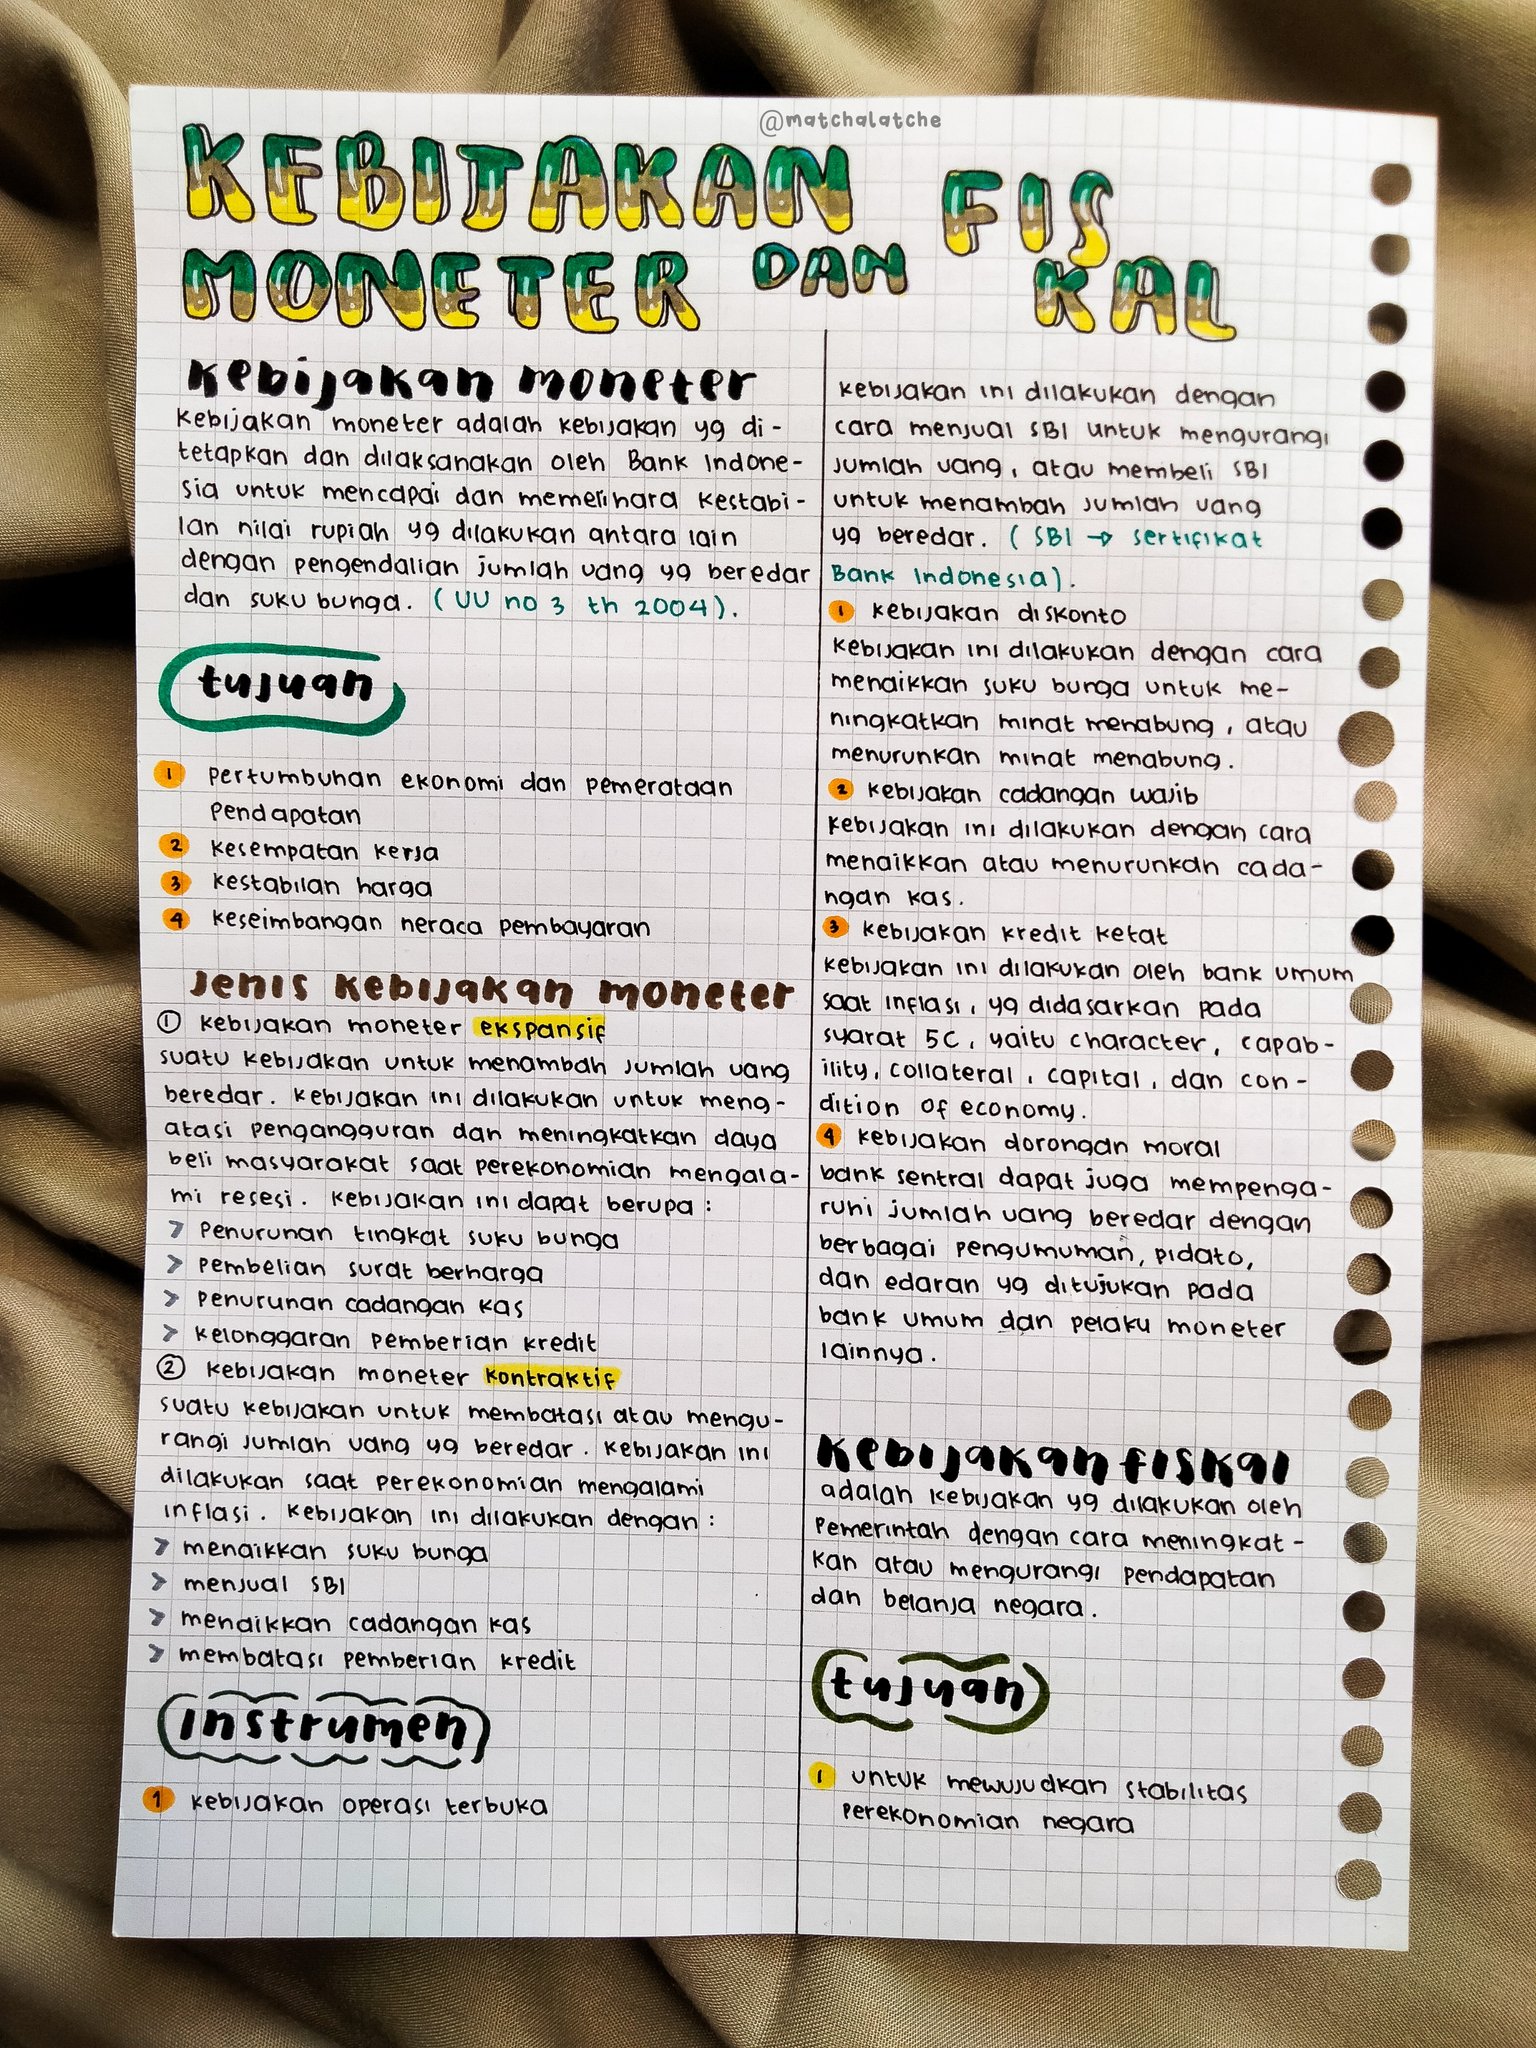 @matchalatche
KEBIJAKAN FIS
MONETER DAN KAL
kebijakan moneter
kebijakan moneter adalah kebijakan yg di-
tetapkan dan dilaksanakan oleh Bank Indone-
sia untuk mencapai dan memelihara kestabi-
lan nilai rupiah yg dilakukan antara lain
dengan pengendalian jumlah uang yg beredar
dan suku bunga. (UU no 3 th 2004).
tujuan
1 pertumbuhan ekonomi dan pemerataan
pendapatan
2 kesempatan kerja
3 kestabilan harga
4 keseimbangan neraca pembayaran
jenis kebijakan moneter
1 kebijakan moneter ekspansif
suatu kebijakan untuk menambah jumlah uang
beredar. kebijakan ini dilakukan untuk meng-
atasi pengangguran dan meningkatkan daya
beli masyarakat saat perekonomian mengala-
mi resesi. kebijakan ini dapat berupa:
> penurunan tingkat suku bunga
> pembelian surat berharga
> penurunan cadangan kas
> kelonggaran pemberian kredit
2 kebijakan moneter kontraktif
suatu kebijakan untuk membatasi atau mengu-
rangi jumlah uang yg beredar. kebijakan ini
dilakukan saat perekonomian mengalami
inflasi. kebijakan ini dilakukan dengan:
> menaikkan suku bunga
> menjual SBI
> menaikkan cadangan kas
> membatasi pemberian kredit
instrumen
1 kebijakan operasi terbuka
kebijakan ini dilakukan dengan
cara menjual SBI untuk mengurangi
jumlah uang, atau membeli SBI
untuk menambah jumlah uang
yg beredar. (SBI → sertifikat
Bank Indonesia).
1 kebijakan diskonto
kebijakan ini dilakukan dengan cara
menaikkan suku bunga untuk me-
ningkatkan minat menabung, atau
menurunkan minat menabung.
2 kebijakan cadangan wajib
kebijakan ini dilakukan dengan cara
menaikkan atau menurunkan cada-
ngan kas.
3 kebijakan kredit ketat
kebijakan ini dilakukan oleh bank umum
saat inflasi, yg didasarkan pada
syarat 5C, yaitu character, capab-
ility, collateral, capital, dan con-
dition of economy.
4 kebijakan dorongan moral
bank sentral dapat juga mempenga-
ruhi jumlah uang beredar dengan
berbagai pengumuman, pidato,
dan edaran yg ditujukan pada
bank umum dan pelaku moneter
lainnya.
kebijakan fiskal
adalah kebijakan yg dilakukan oleh
pemerintah dengan cara meningkat-
kan atau mengurangi pendapatan
dan belanja negara.
tujuan
1 untuk mewujudkan stabilitas
perekonomian negara